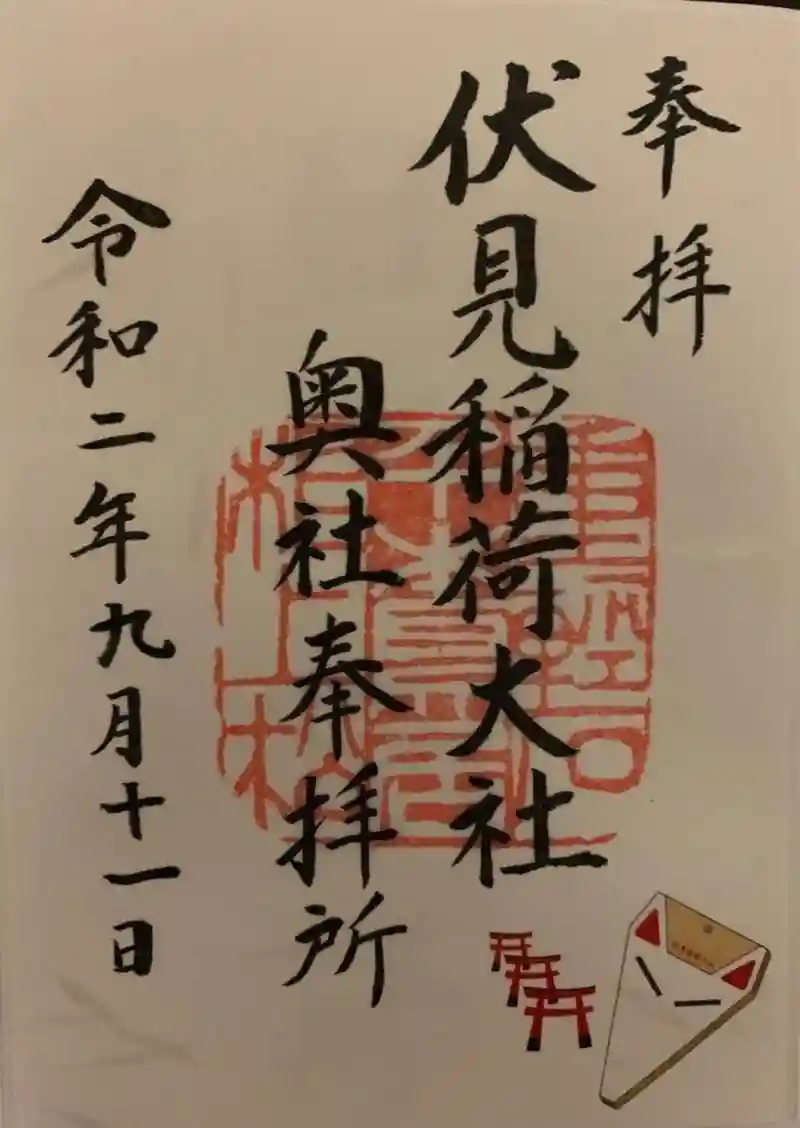 奉拝
伏見稲荷大社
奥社奉拝所
令和二年九月十一日